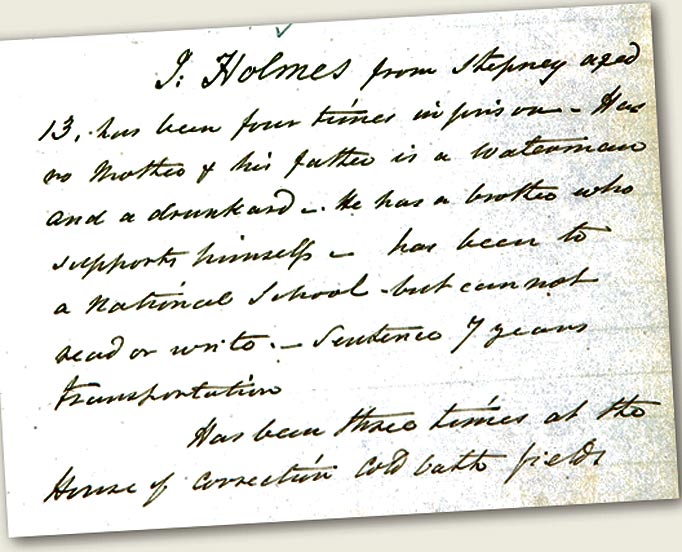 J. Holmes from Stepney aged
13. has been four times in prison – Has
no Mother & his father is a Waterman
and a drunkard – He has a brother who
supports himself – has been to
a National School – but cannot
read or write. – Sentence 7 years
Transportation
Has been three times at the
House of Correction Cold bath fields